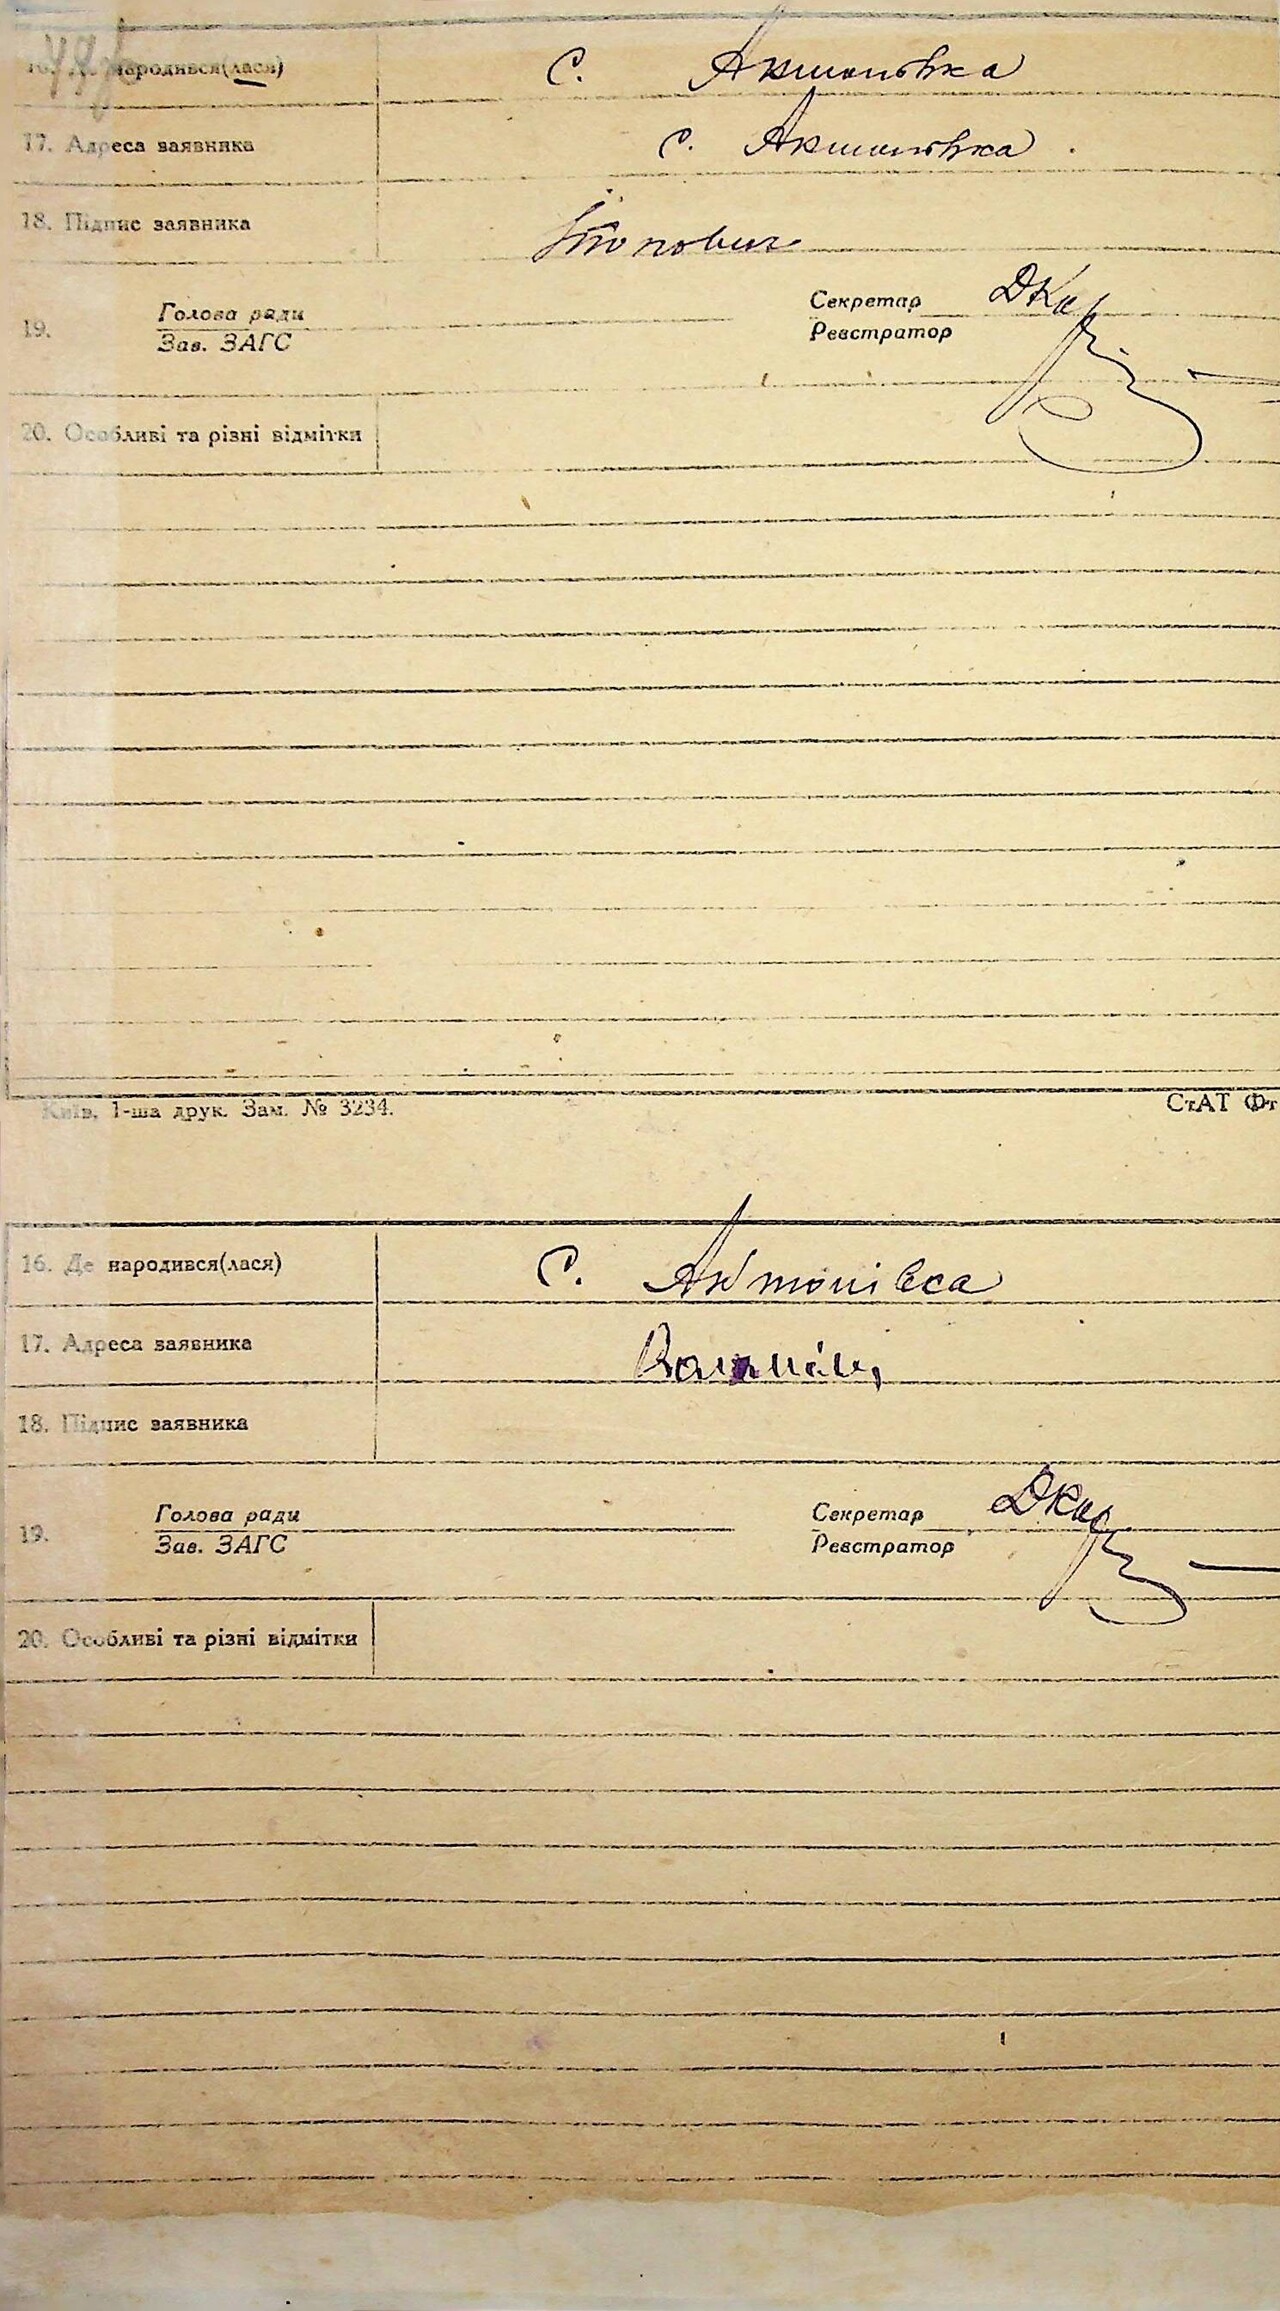 16. Де народився(лася) с. Антонівка
17. Адреса заявника с. Антонівка
18. Підпис заявника
19. Голова ради Секретар
Зав. ЗАГС Реєстратор
20. Особливі та різні відмітки
Київ, 1-ша друк. Зам. № 3234. СтАТ Фт
16. Де народився(лася) с. Антонівка
17. Адреса заявника
18. Підпис заявника
19. Голова ради Секретар
Зав. ЗАГС Реєстратор
20. Особливі та різні відмітки